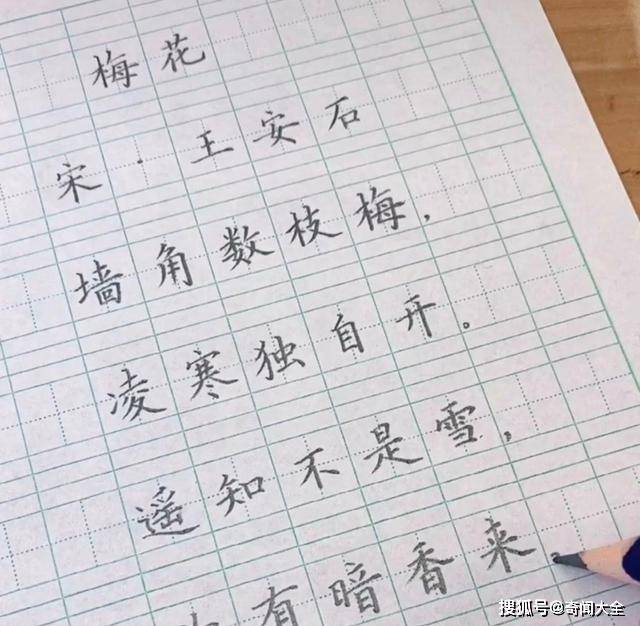 梅花
宋·王安石
墙角数枝梅，
凌寒独自开。
遥知不是雪，
有暗香来。
搜狐号@奇闻大全